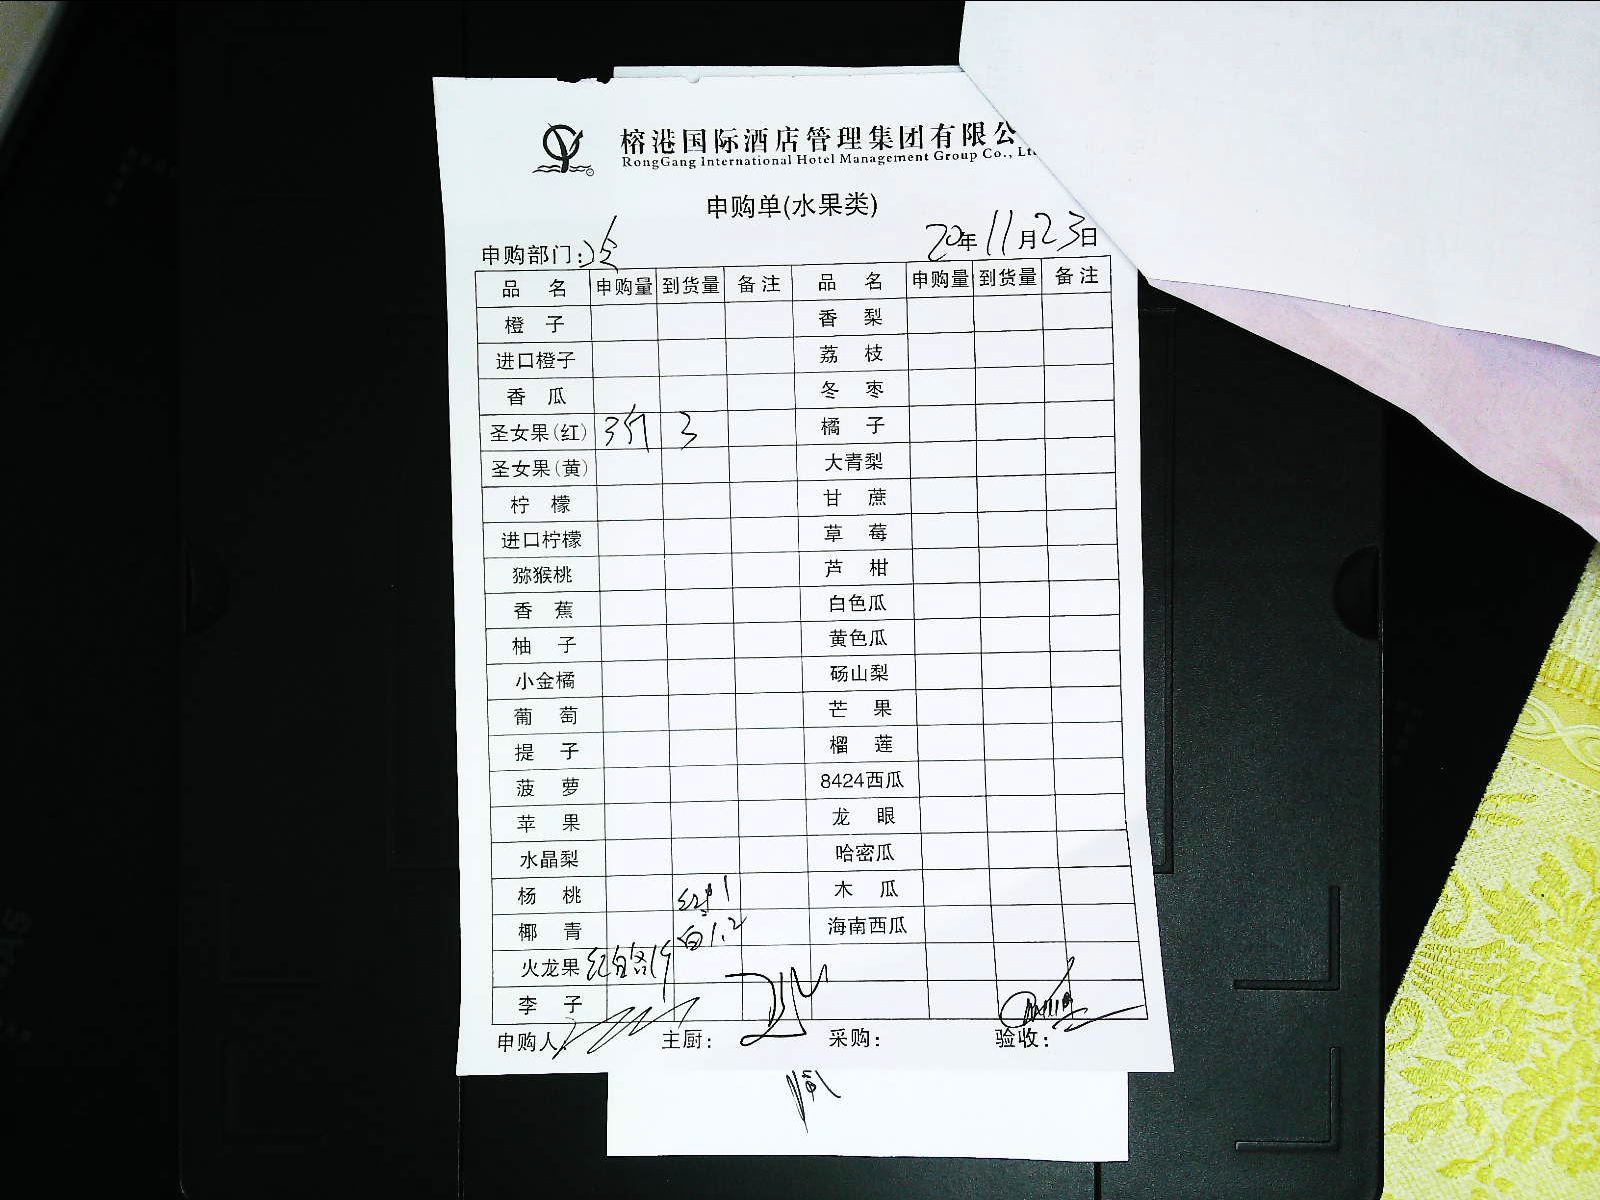 榕港国际酒店管理集团有限公
RongGang International Hotel Management Group Co., Lt
申购单(水果类)
申购部门: 20年11月23日
品 名 申购量 到货量 备注 品 名 申购量 到货量 备注
橙 子 香 梨
进口橙子 荔 枝
香 瓜 冬 枣
圣女果(红) 3斤 3 橘 子
圣女果(黄) 大青梨
柠 檬 甘 蔗
进口柠檬 草 莓
猕猴桃 芦 柑
香 蕉 白色瓜
柚 子 黄色瓜
小金橘 砀山梨
葡 萄 芒 果
提 子 榴 莲
菠 萝 8424西瓜
苹 果 龙 眼
水晶梨 哈密瓜
杨 桃 红 1 木 瓜
椰 青 白1.2 海南西瓜
火龙果 红白各1个
李 子
申购人: 主厨: 采购: 验收: